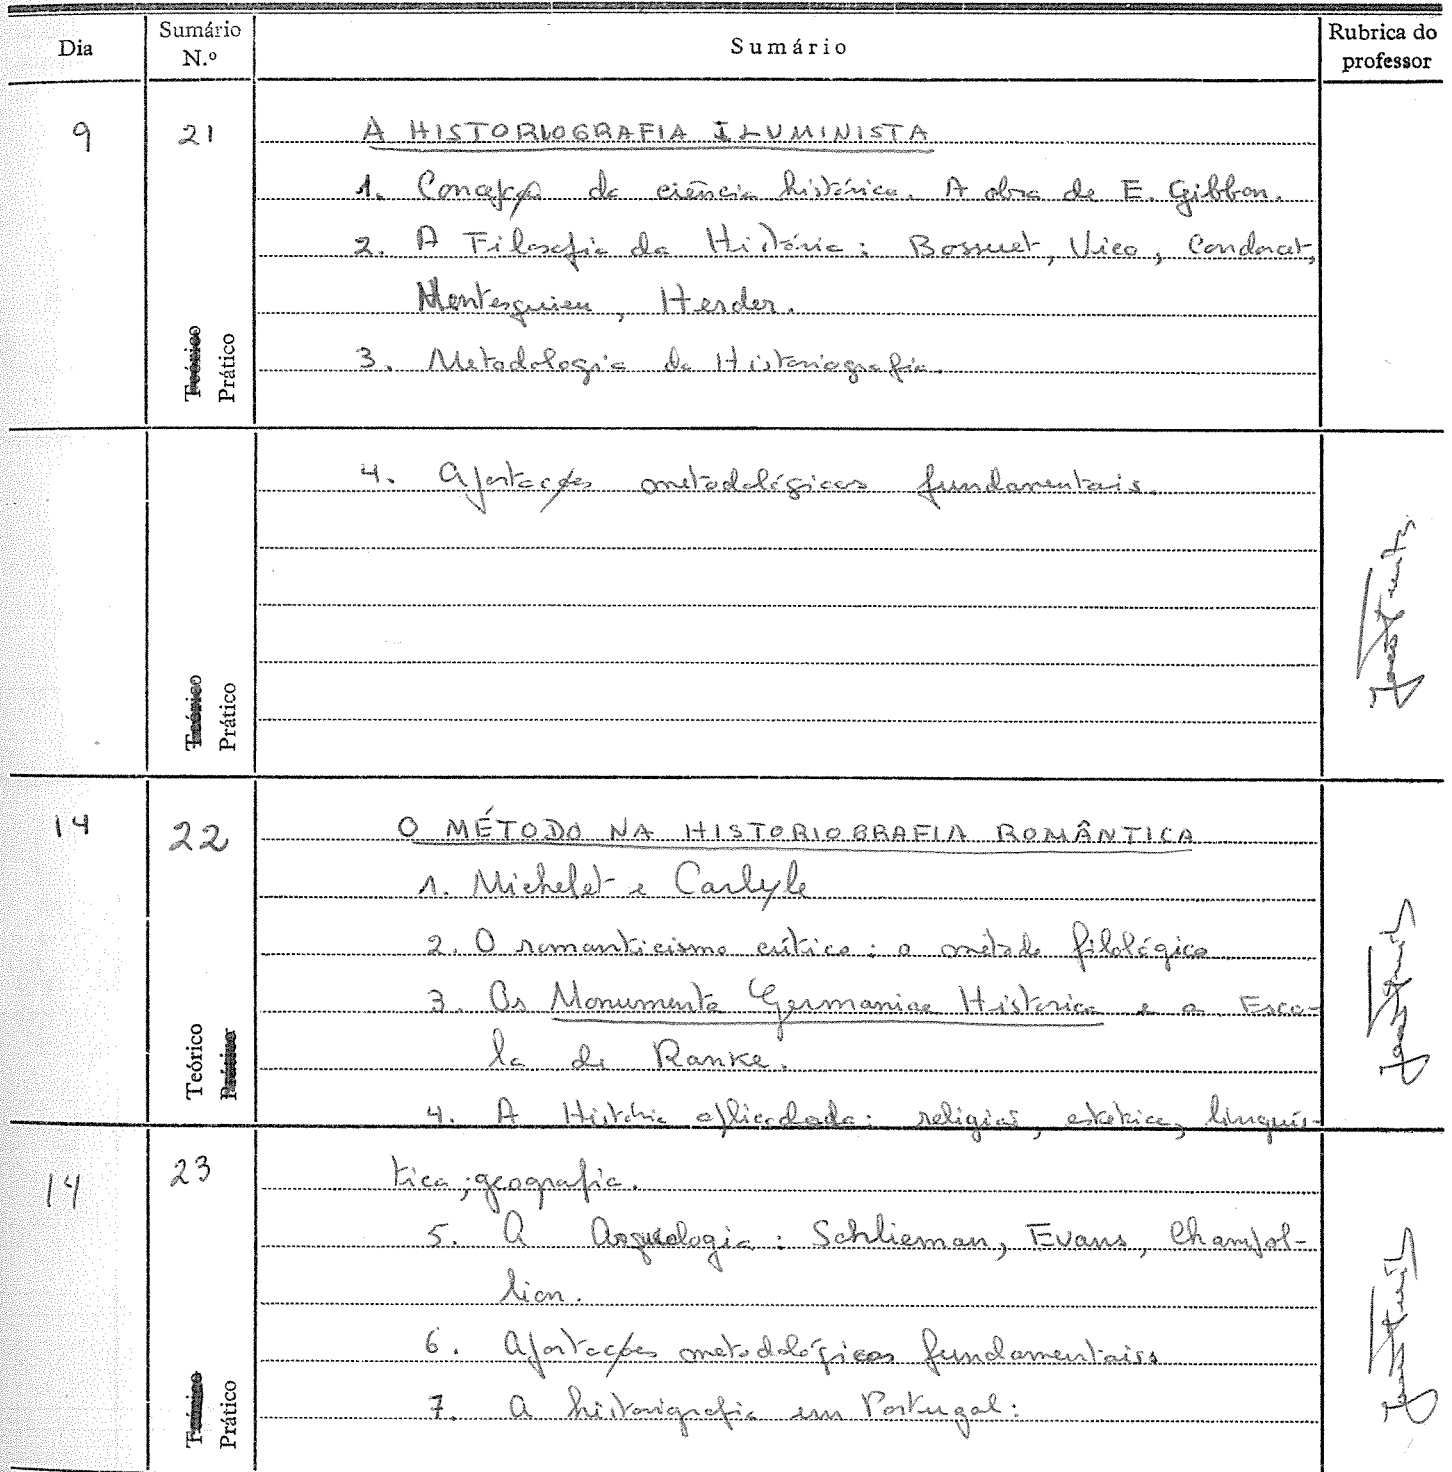 Dia
Sumário N.º
Sumário
Rubrica do professor
9
21
A HISTORIOGRAFIA ILUMINISTA
1. Concepção da ciência histórica. A obra de E. Gibbon.
2. A Filosofia da História: Bossuet, Vico, Condorcet,
Montesquieu, Herder.
3. Metodologia da Historiografia.
Teórico
Prático
4. Aportações metodológicas fundamentais.
Teórico
Prático
14
22
O MÉTODO NA HISTORIOGRAFIA ROMÂNTICA
1. Michelet e Carlyle
2. O romanticismo crítico: o método filológico
3. Os Monumenta Germaniae Historica e a Esco-
la de Ranke.
4. A História aplicada: religião, estética, linguís-
Teórico
Prático
14
23
tica, geografia.
5. A Arqueologia: Schlieman, Evans, Champol-
lion.
6. Aportações metodológicas fundamentais
7. A historigrafia em Portugal:
Teórico
Prático